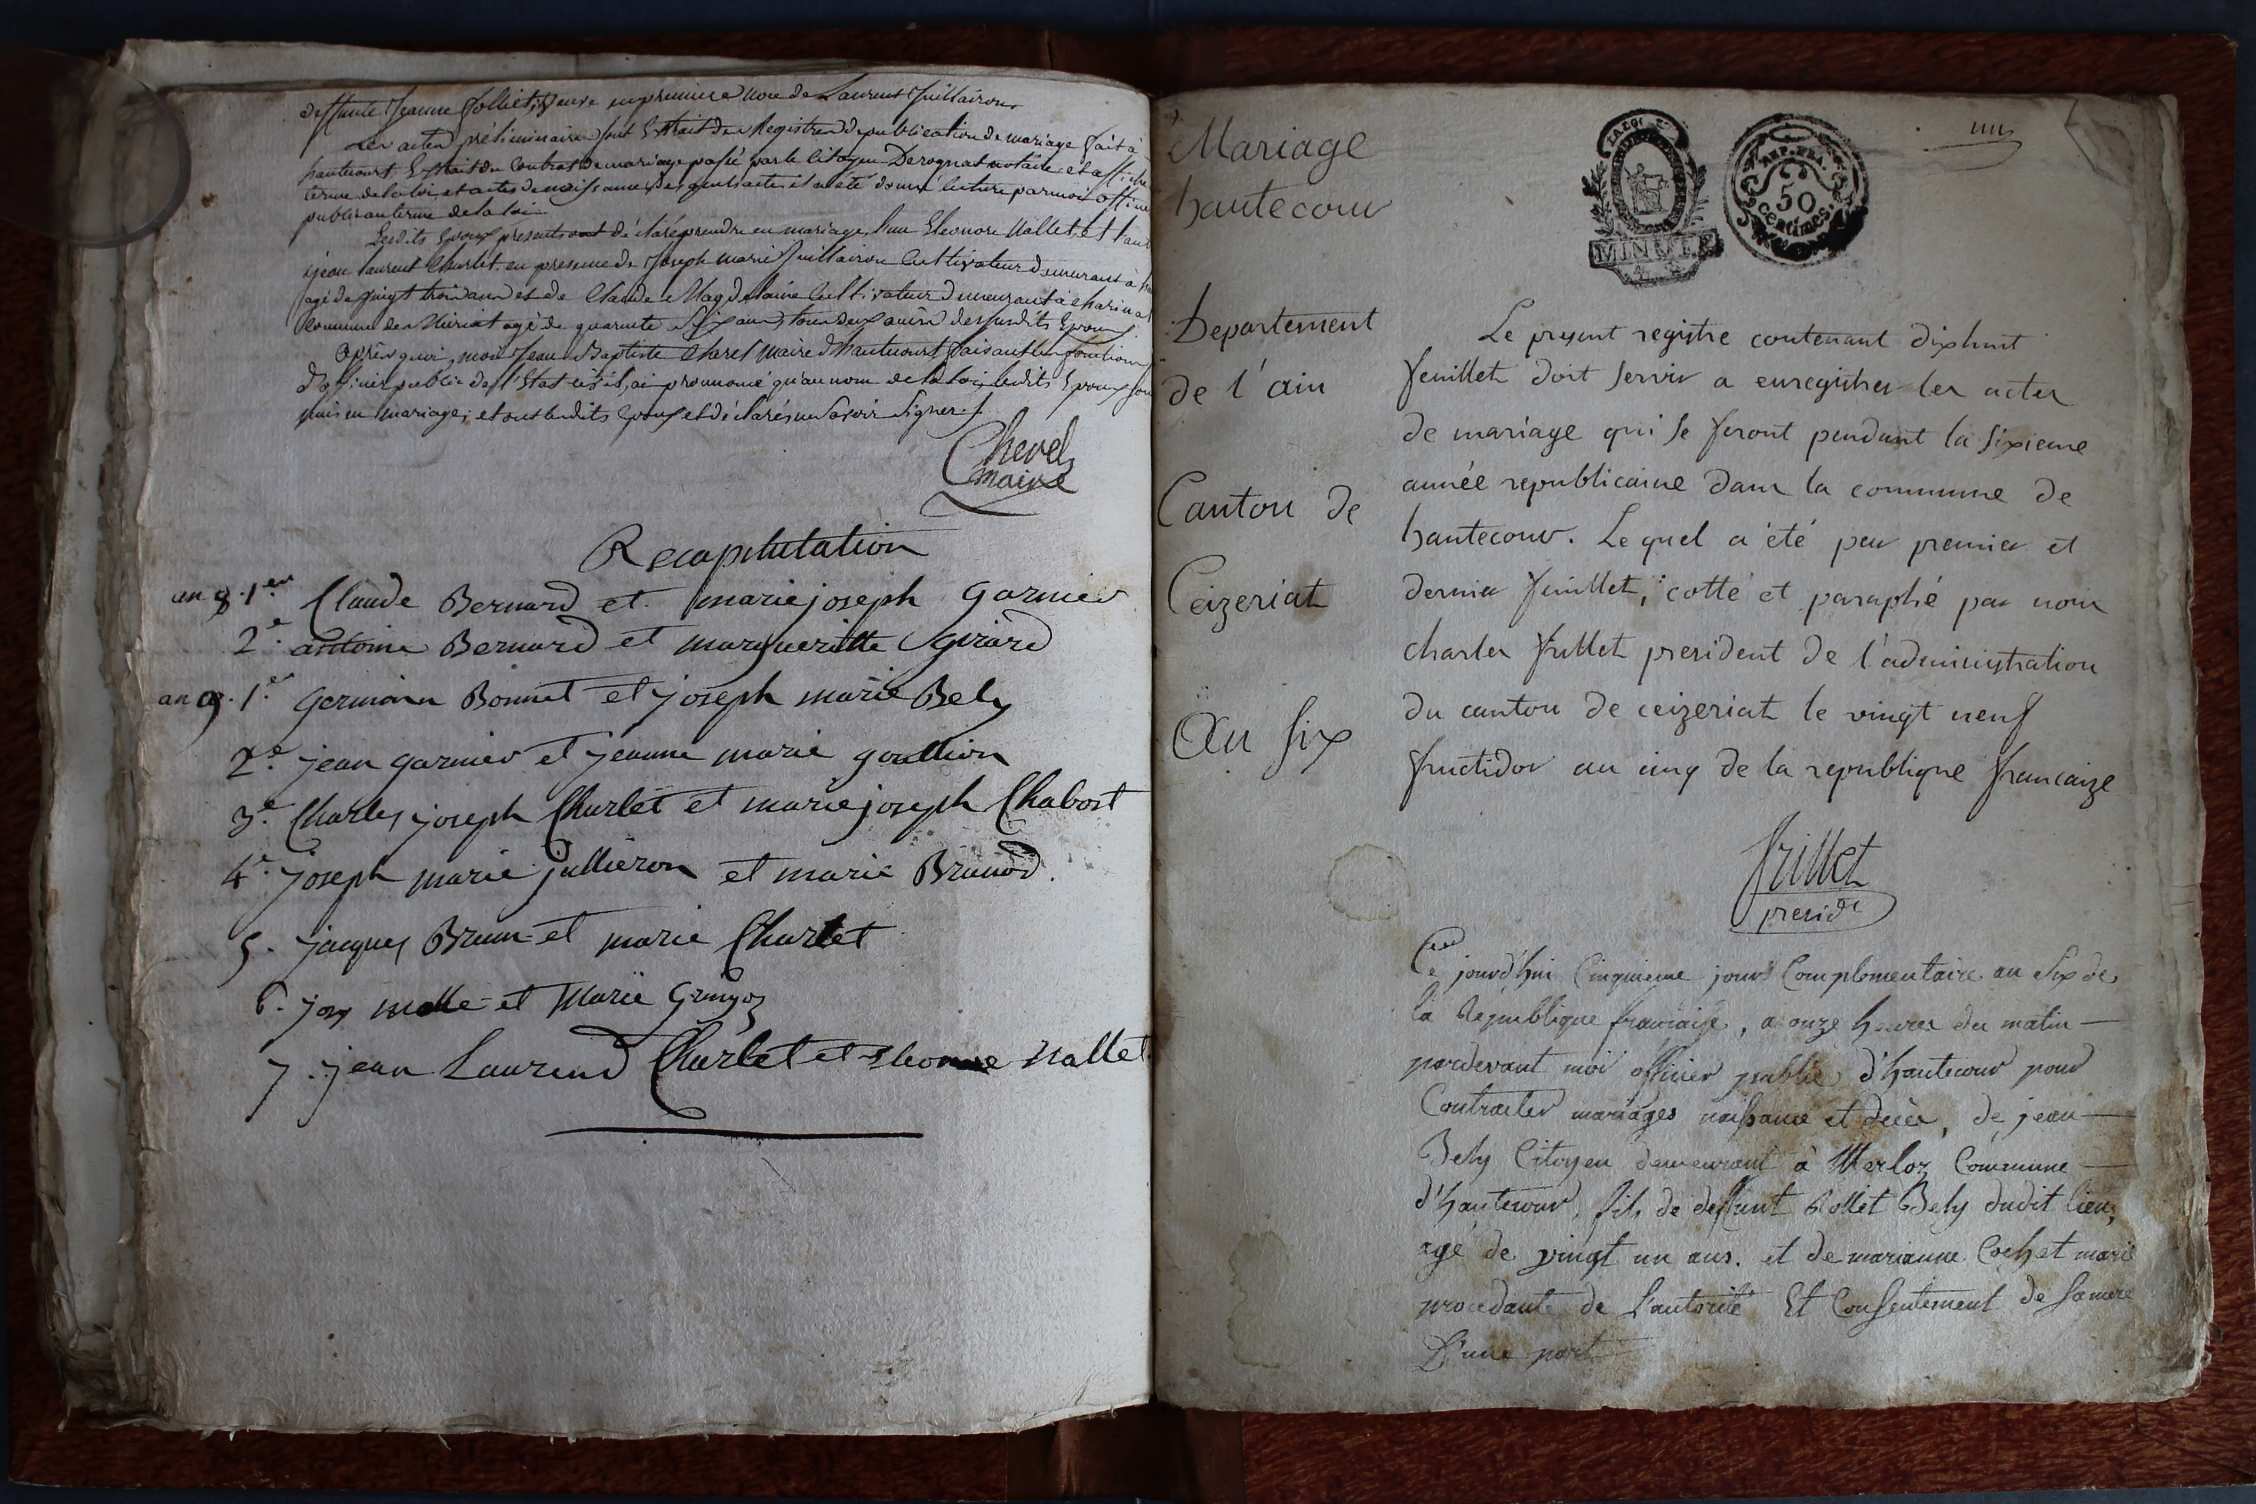 deffunte Jeanne Folliet, veuve en premiere noce de Laurent Juillairon
Les actes préliminaires sont Extrait des Registres de publication de mariage fait à
hautecourt Extrait du Contrat de mariage passé par le Citoyen Derognat notaire et affiché
terme de la loi, et actes de naissances des quels actes il a été donné lecture par moi officier
public au terme de la loi
Lesdits Epoux presents ont déclaré prendre en mariage, l'une Eleonore Nallet, et l'autre
jean laurent Charlet en presence de Joseph marie Juillairon Cultivateur demeurant à
agé de vingt trois ans et de Claude Magdelaine Cultivateur demeurant à charinat
Commune de Nuriat agé de quarante Six ans, tous deux amis desdits Epoux
Après quoi, moi Jean Baptiste Chevel Maire d'hautecourt faisant les fonctions
d'officier public de l'Etat civil, ai prononcé qu'au nom de la loi, lesdits Epoux sont
unis en mariage, et ont lesdits Epoux et déclarés ne Savoir Signer.
Chevel
maire
Recapitulation
an 8. 1er Claude Bernard et marie joseph Garnier
2e. antoine Bernard et margueritte Girard
an 9. 1er germain Bonnet et joseph marie Bely
2e. jean garnier et jeanne marie goullion
3e. Charles joseph Charlet et marie joseph Chabost
4e. joseph marie jullieron et marie Brunod.
5. jacques Brun et marie Charlet
6. jos molle et Marie Gringoz
7. jean Laurend Charlet et Eleonore Nallet.
Mariage
hautecour
Departement
de l'ain
Canton de
Ceizeriat
An six
MINUTE
REP. FRA.
50
centimes.
Le present registre contenant dixhuit
feuillet doit servir a enregistrer les actes
de mariage qui se feront pendant la sixieme
année republicaine dans la commune de
hautecour. Lequel a été par premier et
dernier feuillet, cotté et paraphé par nous
charles frillet president de l'administration
du canton de ceizeriat le vingt neuf
fructidor an cinq de la republique francaize
frillet
presidt
Ce jourd'hui Cinquieme jours Complementaire an Six de
la Republique francaise, a onze heures du matin
pardevant moi officier public d'hautecour pour
Contracter mariages naissance et décès, de jean
Bely Citoyen demeurant à Merloz Commune
d'hautecour, fils de deffunt Rollet Bely dudit lieu,
agé de vingt un ans. et de marianne Cochet marie
procedante de L'autorité Et Consentement de Samere
D'une part